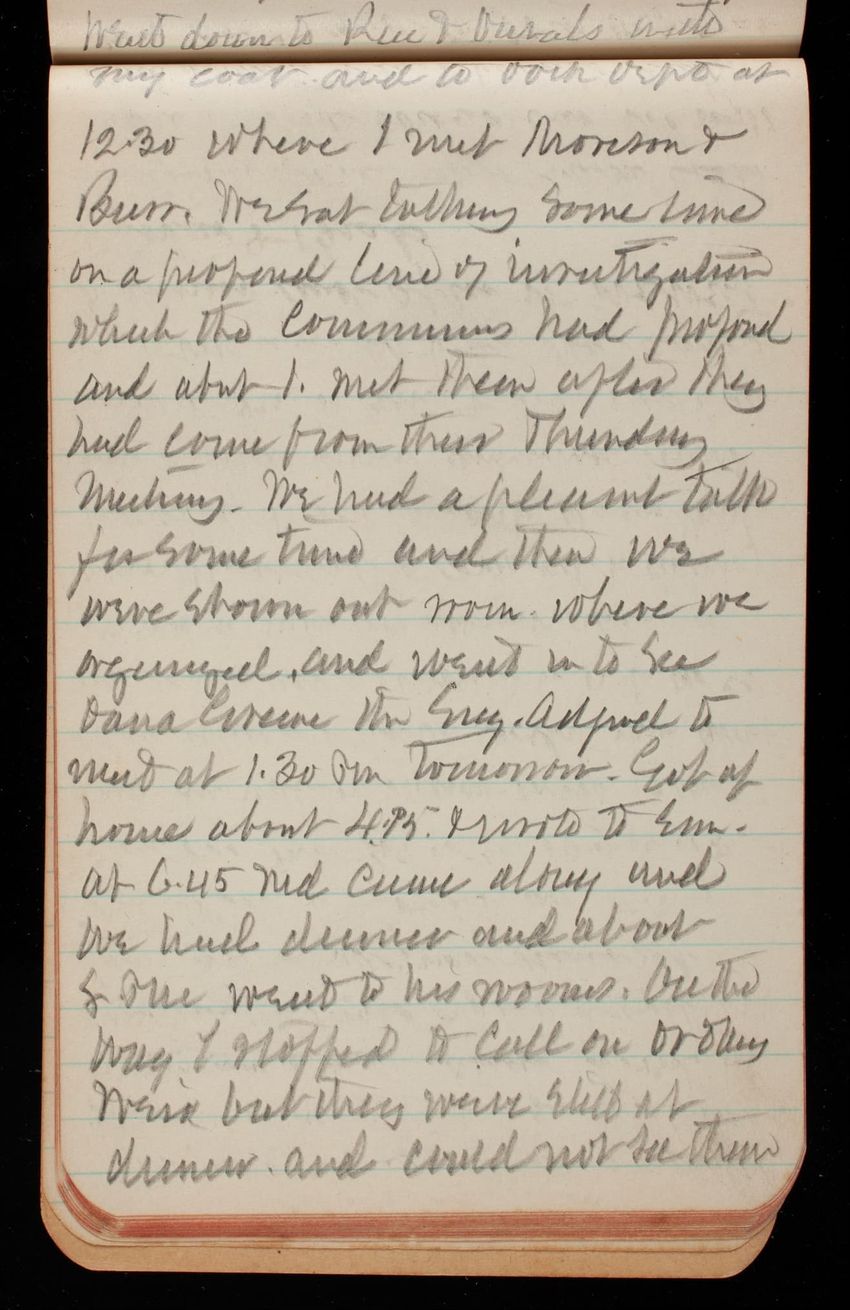 Went down to Rice & Duvals with
my coat and to Dock Dept at
12.30 where I met Morison &
Burr. We sat talking some time
on a proposed line of investigation
which the Commrs had proposed
and about 1. met them after they
had come from their Thursday
Meeting. We had a pleasant talk
for some time and then we
were shown out room. where we
organized, and went in to see
Greene the Eng. Adjned to
meet at 1.30 Pm tomorrow. Got
home about 4. & wrote to Em.
at 6.45 Ned came along and
we had dinner and about
8 we went to his rooms. On the
way I stopped to call on
Weir but they were still at
dinner. and could not see them